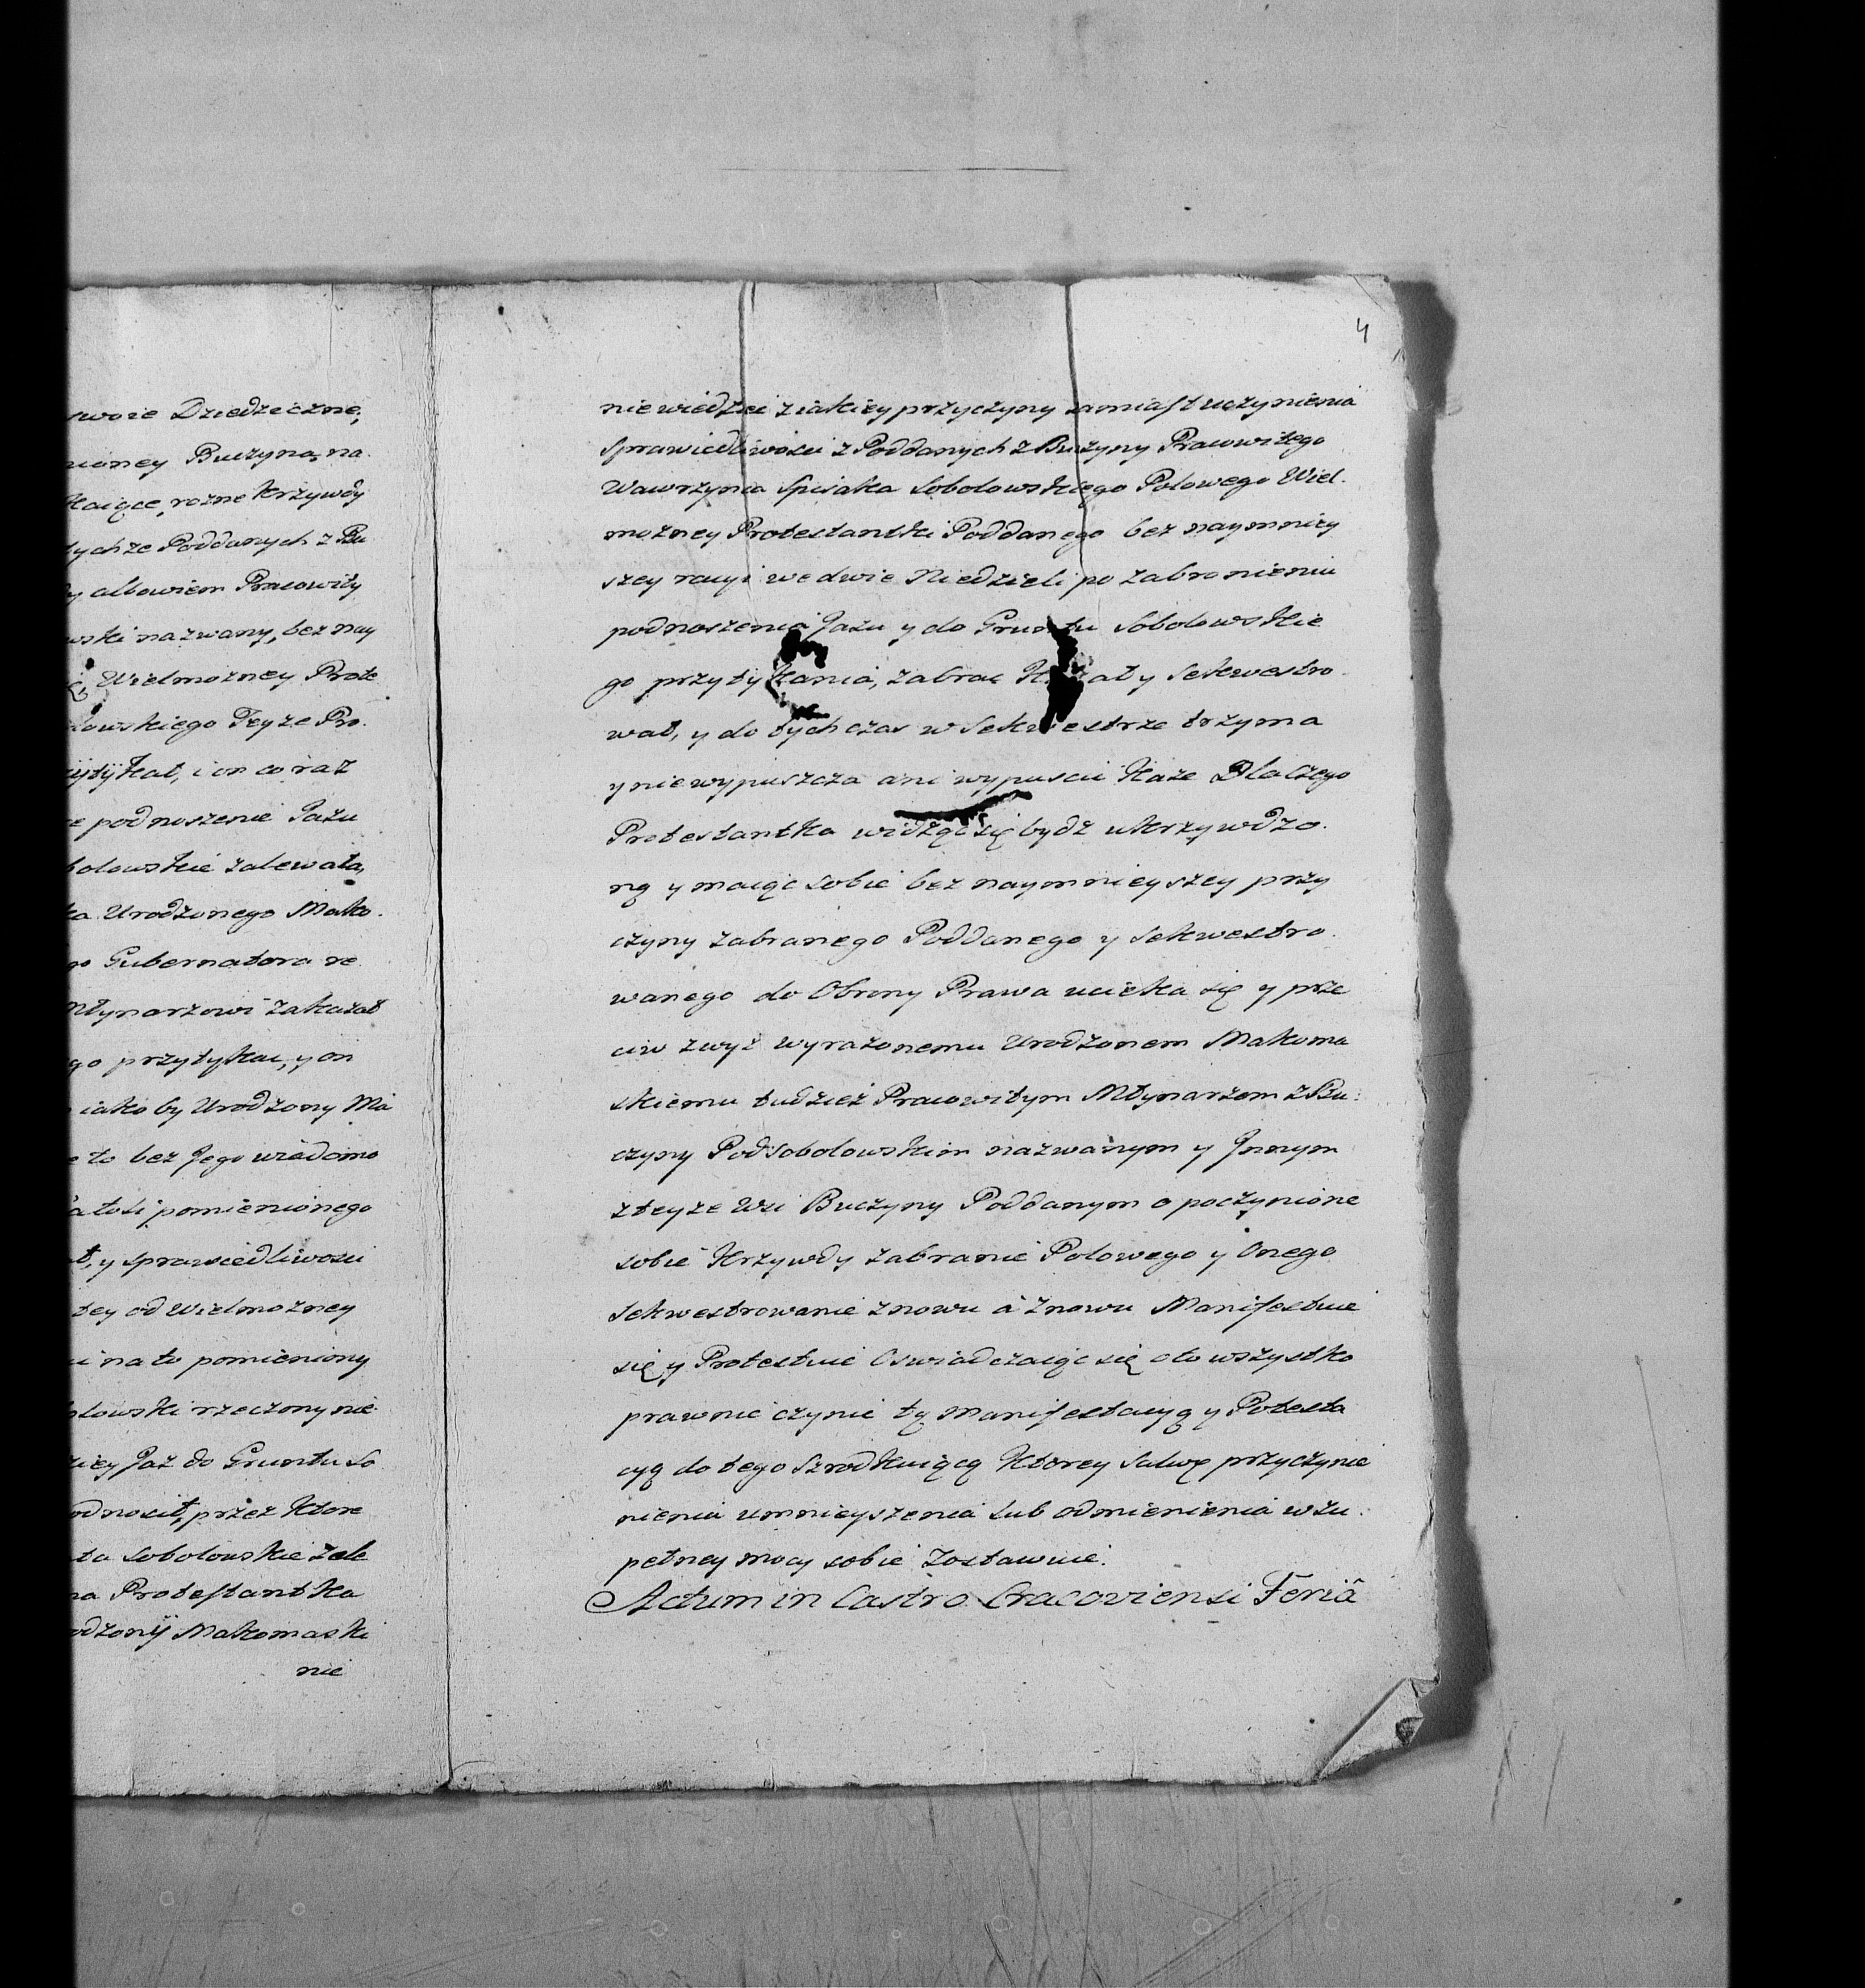 swoie Dziedziczne,
nioney Buczyna, na
kaiące, rożne krzywdy
tychże Poddanych z Bu
y albowiem Pracowity
wski nazwany, bez nay
Wielmożney Prote
lowskiego Teyże Pro.
zytykał, i on co raz
podnoszenie Jazu
bolowskie zalewała,
ka Urodzonego Mako.
go Gubernatora
Młynarzowi zakazał
go przytykać, y on
iakoby Urodzony Ma
e to bez Jego wiadomo
ałości pomienionego
ał, y sprawiedliwości
tey od Wielmożney
i na to pomieniony
olowski rzeczony nie
iey Jaz do Gruntu So
odnosił, przez ktore
ta Sobolowskie zale
na Protestantka
odzony Makomaski
nie
4
niewiedzieć z iakiey przyczyny zamiast uczynienia
Sprawiedliwości z Poddanych z Buczyny Pracowitego
Wawrzynca Spisaka Sobolowskiego Polowego Wiel.
możney Protestantki Poddanego bez naymniey
szey racyi we dwie Niedzieli po zabronieniu
podnoszenia Jazu y do Gruntu Sobolowskie
go przytykania, zabrac kazał y Sekwestro
wał, y do tychczas w Sekwestrze trzyma
y niewypuszcza ani wypuscić każe Dlaczego
Protestantka widząc się bydź ukrzywdzo.
ną y maiąc sobie bez naymnieyszey przy
czyny zabranego Poddanego y Sekwestro.
wanego do Obrony Prawa ucieka się y prze
ciw zwyż wyrażonemu Urodzonem Makoma
skiemu tudzież Pracowitym Młynarzem z Bu:
czyny Podsobolowskim nazwanym y Jnnym
z teyże Wsi Buczyny Poddanym o poczynione
sobie krzywdy zabranie Polowego y Onego
Sekwestrowanie znowu a znowu Manifestuie
się y Protestuie Oswiadczaiąc się o to wszystko
prawnie czynić tę Manifestacyą y Potesta
cyą do tego szrodkuiącą ktorey Salwę przyczynie
nienia umnieyszenia lub odmienienia w zu.
pełney mocy sobie zostawuie.
Actum in Castro Cracoviensi Feriâ